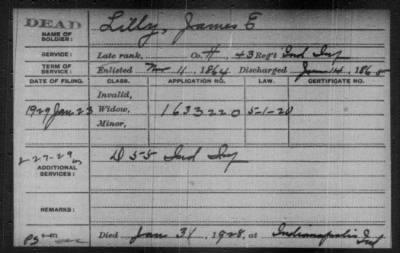 DEAD
NAME OF SOLDIER: Lilly, James E
SERVICE: Late rank, Co. H 43 Reg't Ind Inf
TERM OF SERVICE: Enlisted Nov 11, 1864 Discharged June 14, 1865
DATE OF FILING. CLASS. APPLICATION NO. LAW. CERTIFICATE NO.
Invalid,
1929 Jan 23 Widow, 1633220 5-1-20
Minor,
2-27-29
ADDITIONAL SERVICES: D 55 Ind Inf
REMARKS:
Died Jan 31, 1928, at Indianapolis Ind